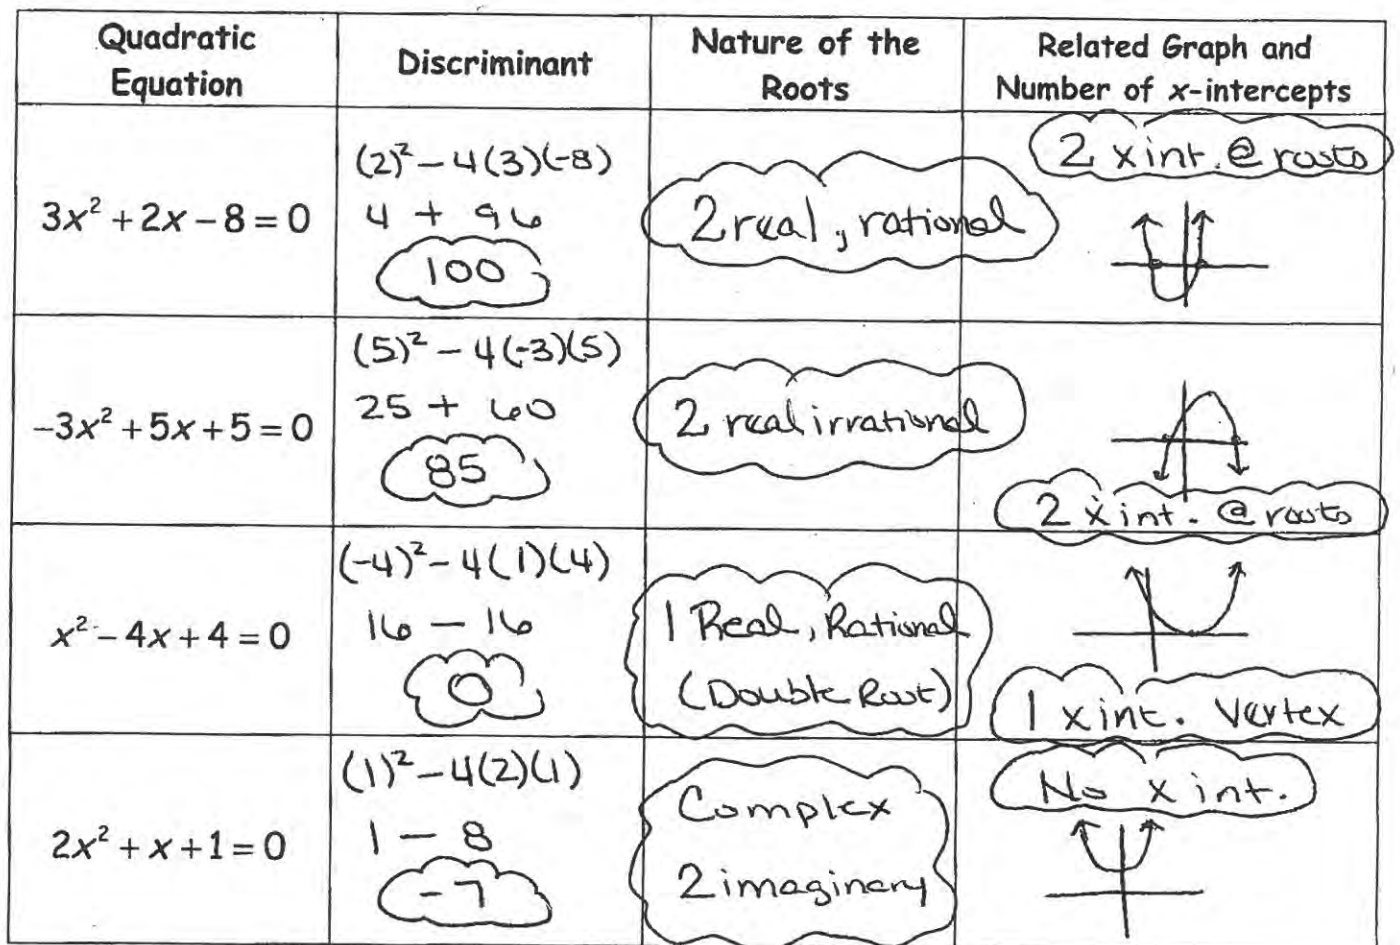 Quadratic
Equation
Discriminant
Nature of the
Roots
Related Graph and
Number of x-intercepts
3x² + 2x – 8 = 0
(2)² – 4(3)(-8)
4 + 96
100
2 real, rational
2 x int. @ roots
–3x² + 5x + 5 = 0
(5)² – 4(-3)(5)
25 + 60
85
2 real irrational
2 x int. @ roots
x² – 4x + 4 = 0
(-4)² – 4(1)(4)
16 – 16
0
1 Real, Rational
(Double Root)
1 x int. Vertex
2x² + x + 1 = 0
(1)² – 4(2)(1)
1 – 8
-7
Complex
2 imaginary
No x int.